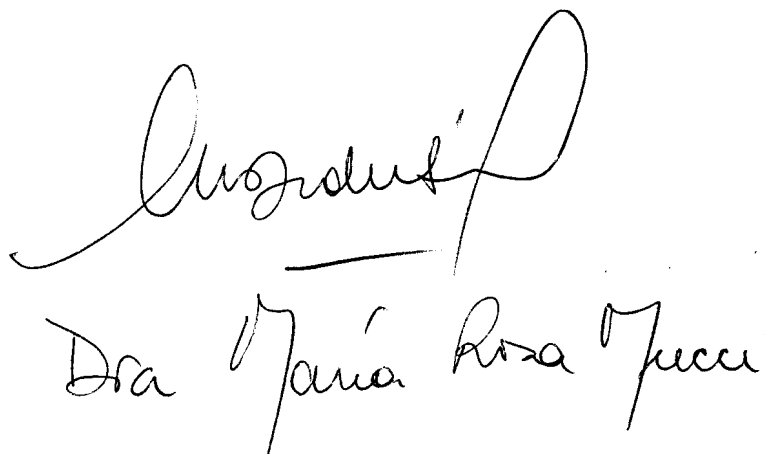 Dra María Rosa Mucci